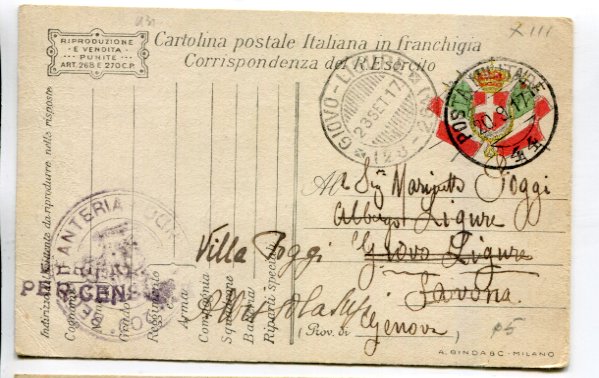 XIII
RIPRODUZIONE
E VENDITA
PUNITE
ART. 268 E 270 C.P.
Cartolina postale Italiana in franchigia
Corrispondenza del R. Esercito
GIOVO-LIGURE
23 SET 17
POSTA MILITARE
20.9.17
44
A Sig Poggi
Albergo Ligure
Giovo Ligure
Villa Poggi
Savona
(Prov. di Genova)
FANTERIA
PER CENS
Indirizzo del mittente da riprodurre nelle risposte
Cognome
Nome
Grado
Reggimento
Arma
Compagnia
Squadrone
Batteria
Riparti speciali
A. BINDA & C - MILANO